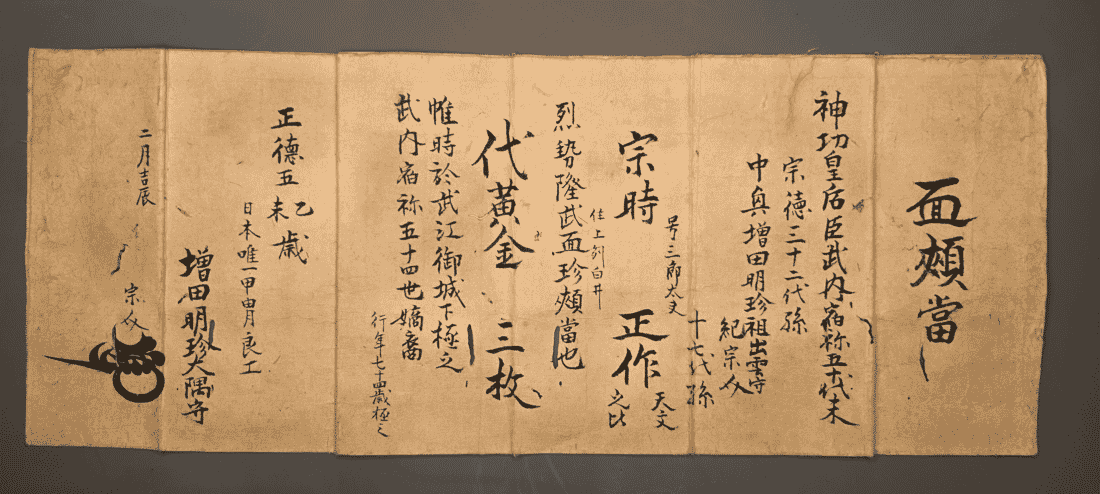 面頰當
神功皇后臣武内宿祢五十代末
宗徳三十二代孫
中興増田明珍祖出雲守
紀宗介
十七代孫
宗時 正作
号三郎太夫
天文
之比
住上刕白井
烈勢隆武面珍頰當也
代黄金 三枚
惟時於武江御城下極之
武内宿祢五十四世嫡裔
行年七十四歳極之
正徳五乙未歳
日本唯一甲冑良工
増田明珍大隅守
二月吉辰
宗介